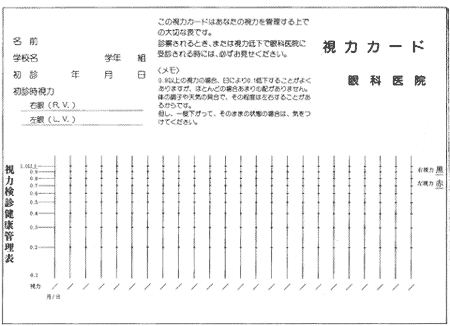 名 前
学校名 学年 組
初 診 年 月 日
初診時視力
右眼 (R.V.)
左眼 (L.V.)
この視力カードはあなたの視力を管理する上で
の大切な表です。
診察されるとき、または視力低下で眼科医院に
受診される時には、必ずお見せください。
〈メモ〉
0.9以上の視力の場合、日により0.1低下することがよく
ありますが、ほとんどの場合あまり心配がありません。
体の調子や天気の具合で、その程度は左右することがあ
るからです。
但し、一度下がって、そのままの状態の場合は、気をつ
けてください。
視力カード
眼科医院
視力検診健康管理表
1.0以上
0.9
0.8
0.7
0.6
0.5
0.4
0.3
0.2
0.1
視力
月/日
右視力 黒
左視力 赤